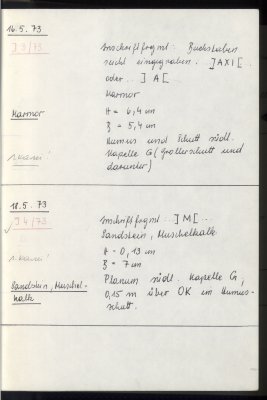 16.5.73
J 3/73
Inschriftfrgmt: Buchstaben
nicht eingegraben. ]AXI[
oder ...] A [...
Marmor
Marmor
H = 6,4 cm
B = 5,4 cm
Humus und Schutt südl.
Kapelle G (Grollerschutt und
darunter)
18.5.73
J 4/73
Inschriftfrgmt. ..] M [...
Sandstein, Muschelkalk
H - 0,13 cm
B = 7 cm
Sandstein, Muschel-
kalk
Planum südl. Kapelle G,
0,15 m über OK im Humus-
schutt.